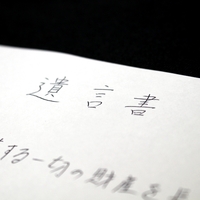 遺言書
する一切の財産を